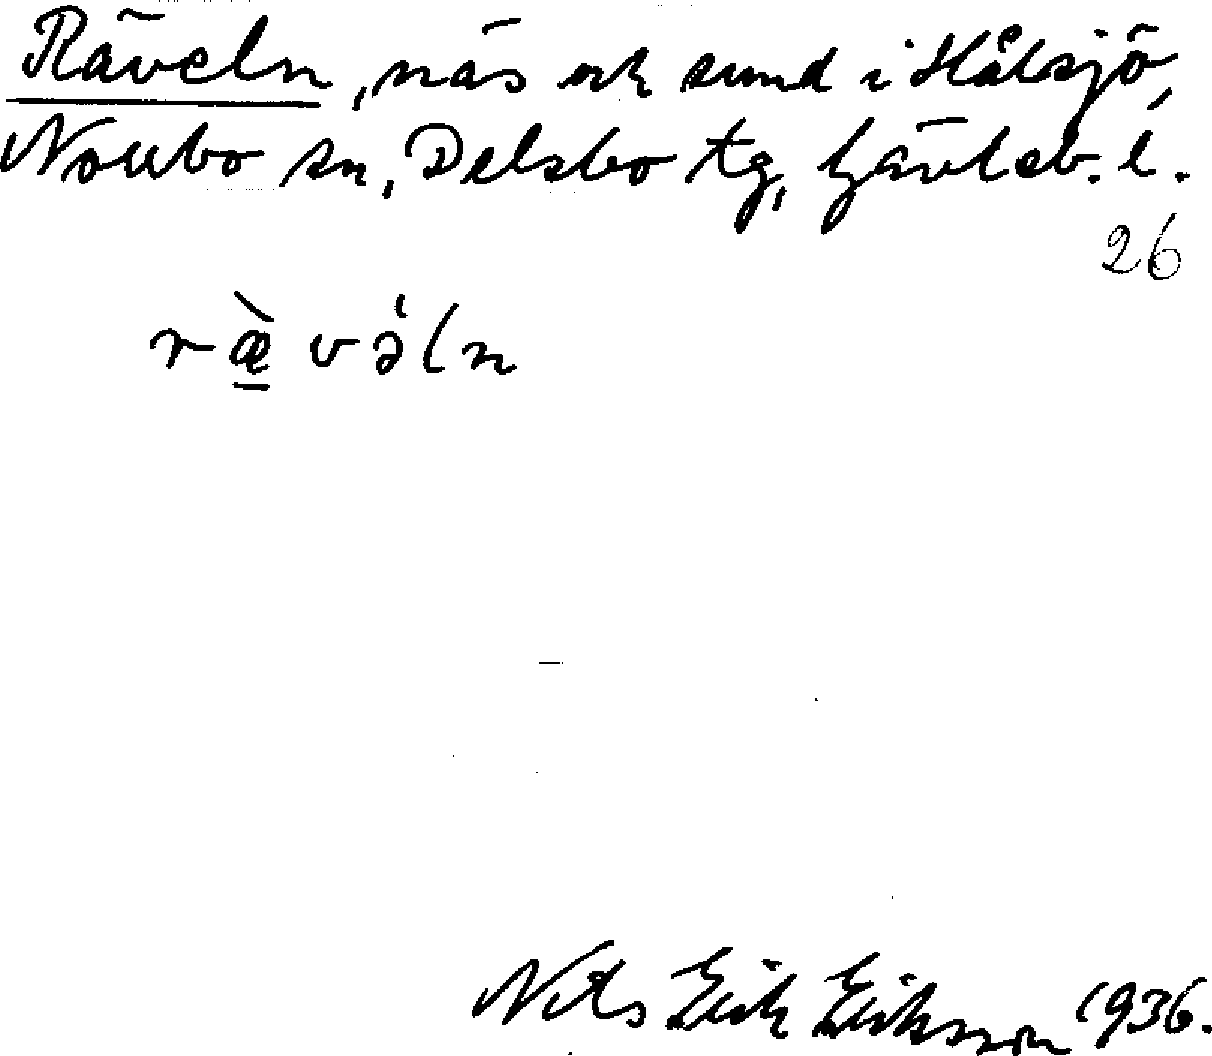 Räveln, näs och sund i Hålsjö,
Norrbo sn, Delsbo tg, Gävleb. l.
26
ræ̀vəln
Nils Erik Eriksson 1936.